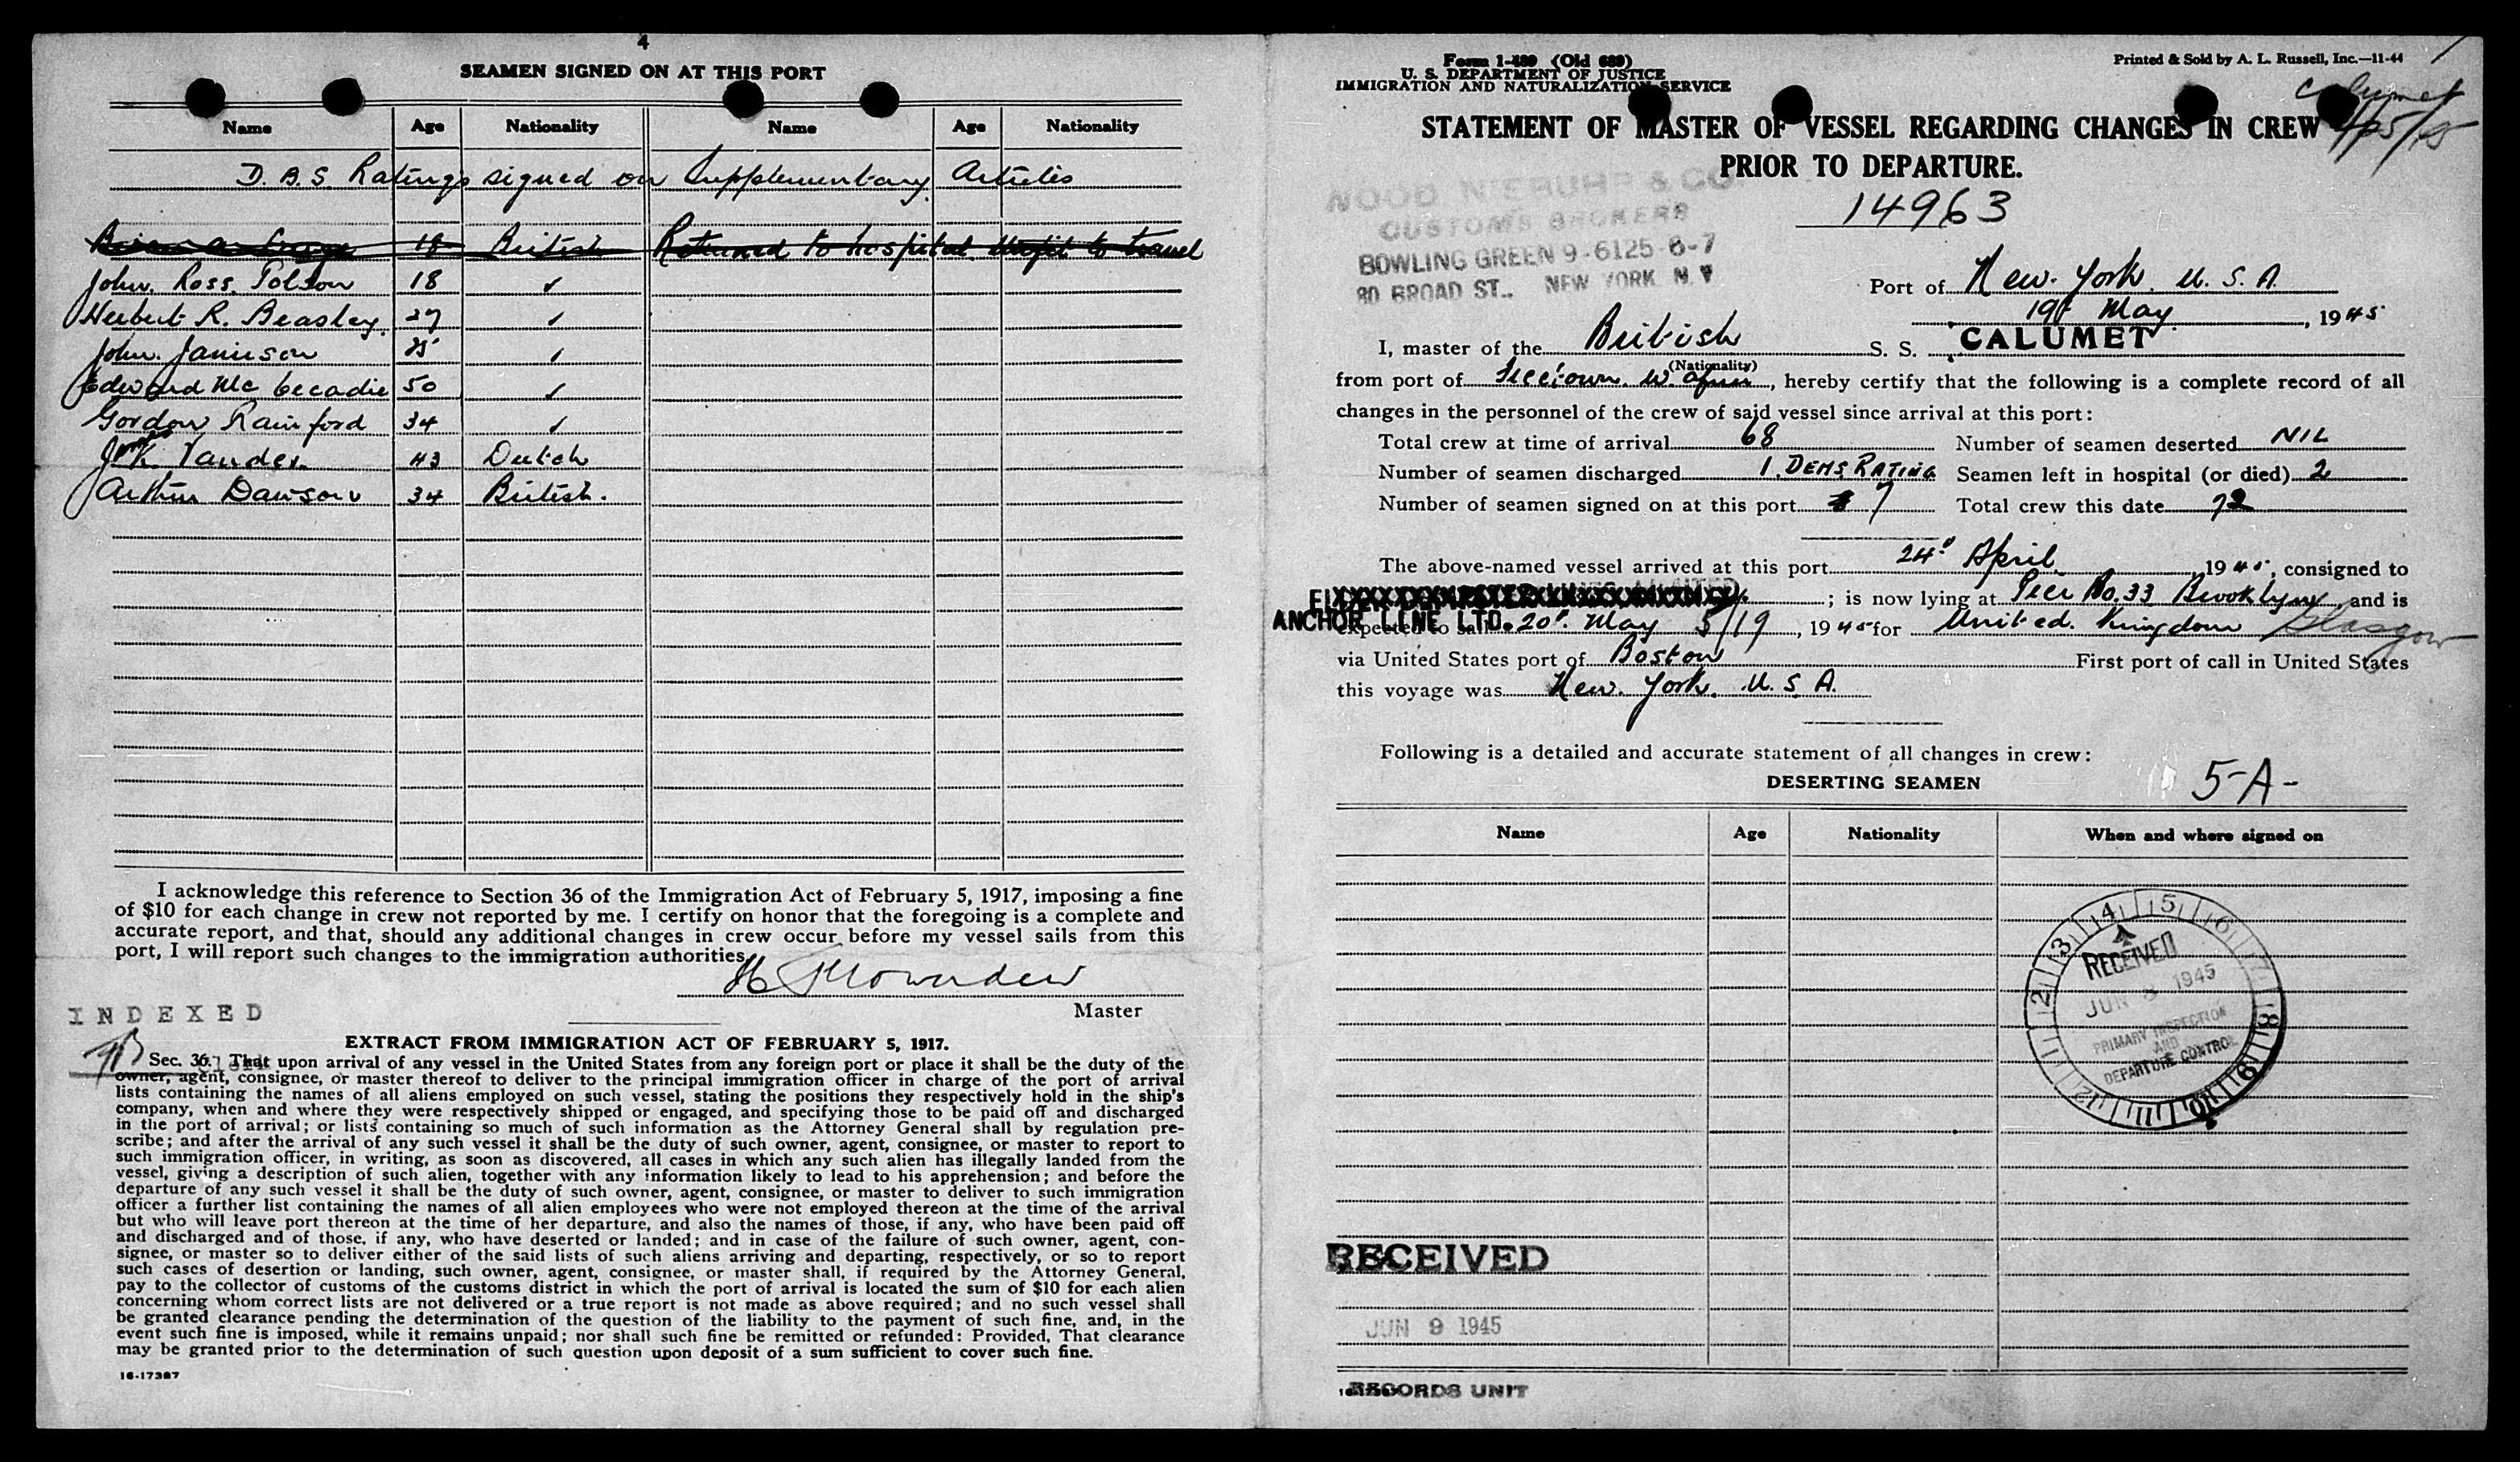 4
SEAMEN SIGNED ON AT THIS PORT
Name Age Nationality Name Age Nationality
D. B. S. Ratings signed on Supplementary Articles
18 British Returned to hospital unfit to travel
John. Ross. Polson 18 ✓
Herbert R. Beasley. 27 ✓
John. Jamieson 25 ✓
Edward Mc 50 ✓
Gordon Rainford 34 ✓
43 Dutch
Arthur Dawson 34 British.
I acknowledge this reference to Section 36 of the Immigration Act of February 5, 1917, imposing a fine
of $10 for each change in crew not reported by me. I certify on honor that the foregoing is a complete and
accurate report, and that, should any additional changes in crew occur before my vessel sails from this
port, I will report such changes to the immigration authorities.
Master
INDEXED
EXTRACT FROM IMMIGRATION ACT OF FEBRUARY 5, 1917.
Sec. 36. That upon arrival of any vessel in the United States from any foreign port or place it shall be the duty of the
owner, agent, consignee, or master thereof to deliver to the principal immigration officer in charge of the port of arrival
lists containing the names of all aliens employed on such vessel, stating the positions they respectively hold in the ship's
company, when and where they were respectively shipped or engaged, and specifying those to be paid off and discharged
in the port of arrival; or lists containing so much of such information as the Attorney General shall by regulation pre-
scribe; and after the arrival of any such vessel it shall be the duty of such owner, agent, consignee, or master to report to
such immigration officer, in writing, as soon as discovered, all cases in which any such alien has illegally landed from the
vessel, giving a description of such alien, together with any information likely to lead to his apprehension; and before the
departure of any such vessel it shall be the duty of such owner, agent, consignee, or master to deliver to such immigration
officer a further list containing the names of all alien employees who were not employed thereon at the time of the arrival
but who will leave port thereon at the time of her departure, and also the names of those, if any, who have been paid off
and discharged and of those, if any, who have deserted or landed; and in case of the failure of such owner, agent, con-
signee, or master so to deliver either of the said lists of such aliens arriving and departing, respectively, or so to report
such cases of desertion or landing, such owner, agent, consignee, or master shall, if required by the Attorney General,
pay to the collector of customs of the customs district in which the port of arrival is located the sum of $10 for each alien
concerning whom correct lists are not delivered or a true report is not made as above required; and no such vessel shall
be granted clearance pending the determination of the question of the liability to the payment of such fine, and, in the
event such fine is imposed, while it remains unpaid; nor shall such fine be remitted or refunded: Provided, That clearance
may be granted prior to the determination of such question upon deposit of a sum sufficient to cover such fine.
16-17387
Form I-489 (Old 689)
U. S. DEPARTMENT OF JUSTICE
IMMIGRATION AND NATURALIZATION SERVICE
Printed & Sold by A. L. Russell, Inc.—11-44
Calumet
STATEMENT OF MASTER OF VESSEL REGARDING CHANGES IN CREW
PRIOR TO DEPARTURE.
14963
& CO.
CUSTOMS BROKERS
BOWLING GREEN 9-6125-6-7
80 BROAD ST., NEW YORK N. Y
Port of New. York. U. S. A.
19th May, 1945
I, master of the British S. S. CALUMET
(Nationality)
from port of Freetown. W. Africa, hereby certify that the following is a complete record of all
changes in the personnel of the crew of said vessel since arrival at this port:
Total crew at time of arrival 68 Number of seamen deserted NIL
Number of seamen discharged 1. DEMS. RATING Seamen left in hospital (or died) 2
Number of seamen signed on at this port 7 Total crew this date 72
The above-named vessel arrived at this port 24th April, 1945, consigned to
ANCHOR LINE LTD. ; is now lying at Pier No. 33 Brooklyn, and is
expected to sail 20th May 5/19, 1945 for United. Kingdom Glasgow
via United States port of Boston First port of call in United States
this voyage was New. York. U. S. A.
Following is a detailed and accurate statement of all changes in crew:
DESERTING SEAMEN 5-A-
Name Age Nationality When and where signed on
RECEIVED
JUN 8 1945
PRIMARY INSPECTION
AND
DEPARTURE CONTROL
1 2 3 4 5 6 7 8 9 10 11 12
RECEIVED
JUN 9 1945
RECORDS UNIT